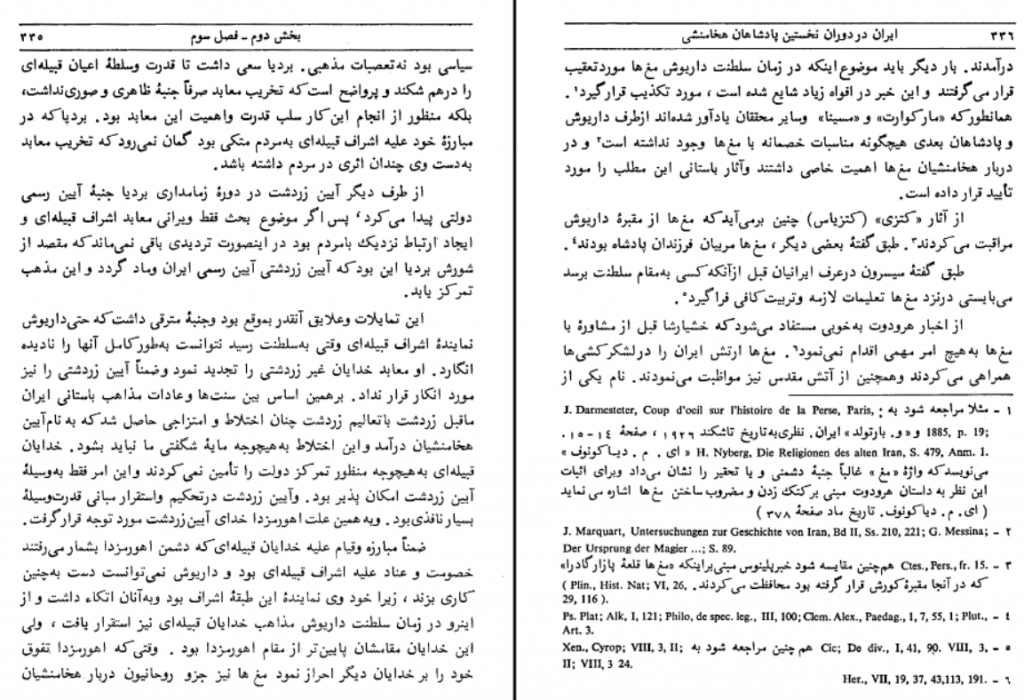 بخش دوم ـ فصل سوم
۳۳۵
سیاسی بود نه تعصبات مذهبی. بردیا سعی داشت تا قدرت وسلطهٔ اعیان قبیله‌ای
را درهم شکند و پرواضح است که تخریب معابد صرفاً جنبهٔ ظاهری و صوری نداشت،
بلکه منظور از انجام این کار سلب قدرت واهمیت این معابد بود. بردیا که در
مبارزهٔ خود علیه اشراف قبیله‌ای به‌مردم متکی بود گمان نمی‌رود که تخریب معابد
به‌دست وی چندان اثری در مردم داشته باشد.
از طرف دیگر آیین زردشت در دورهٔ زمامداری بردیا جنبهٔ آیین رسمی
دولتی پیدا می‌کرد، پس اگر موضوع بحث فقط ویرانی معابد اشراف قبیله‌ای و
ایجاد ارتباط نزدیک بامردم بود در اینصورت تردیدی باقی نمی‌ماند که مقصد از
شورش بردیا این بود که آیین زردشتی آیین رسمی ایران وماد گردد و این مذهب
تمرکز یابد.
این تمایلات وعلایق آنقدر بموقع بود وجنبهٔ مترقی داشت که حتی داریوش
نمایندهٔ اشراف قبیله‌ای وقتی به‌سلطنت رسید نتوانست به‌طور کامل آنها را نادیده
انگارد. او معابد خدایان غیر زردشتی را تجدید نمود وضمناً آیین زردشتی را نیز
مورد انکار قرار نداد. برهمین اساس بین سنت‌ها وعادات مذاهب باستانی ایران
ماقبل زردشت باتعالیم زردشت چنان اختلاط و امتزاجی حاصل شد که به نام آیین
هخامنشیان درآمد و این اختلاط به‌هیچوجه مایهٔ شگفتی ما نباید بشود. خدایان
قبیله‌ای به‌هیچوجه منظور تمرکز دولت را تأمین نمی‌کردند و این امر فقط به‌وسیلهٔ
آیین زردشت امکان پذیر بود. وآیین زردشت درتحکیم واستقرار مبانی قدرت وسیلهٔ
بسیار نافذی بود. وبه‌همین علت اهورمزدا خدای آیین زردشت مورد توجه قرار گرفت.
ضمناً مبارزه وقیام علیه خدایان قبیله‌ای که دشمن اهورمزدا بشمار می‌رفتند
خصومت و عناد علیه اشراف قبیله‌ای بود و داریوش نمی‌توانست دست به‌چنین
کاری بزند، زیرا خود وی نمایندهٔ این طبقهٔ اشراف بود وبه‌آنان اتکاء داشت و از
اینرو در زمان سلطنت داریوش مذاهب خدایان قبیله‌ای نیز استقرار یافت، ولی
این خدایان مقامشان پایین‌تر از مقام اهورمزدا بود. وقتی که اهورمزدا تفوق
خود را بر خدایان دیگر احراز نمود مغ‌ها نیز جزو روحانیون دربار هخامنشیان
۳۳۶
ایران در دوران نخستین پادشاهان هخامنشی
درآمدند. بار دیگر باید موضوع اینکه در زمان سلطنت داریوش مغ‌ها مورد تعقیب
قرار می‌گرفتند و این خبر در افواه زیاد شایع شده است، مورد تکذیب قرار گیرد۱.
همانطور که «مارکوارت» و «مسینا» وسایر محققان یادآور شده‌اند ازطرف داریوش
و پادشاهان بعدی هیچگونه مناسبات خصمانه با مغ‌ها وجود نداشته است۲ و در
دربار هخامنشیان مغ‌ها اهمیت خاصی داشتند وآثار باستانی این مطلب را مورد
تأیید قرار داده است.
از آثار «کتزی» (کتزیاس) چنین برمی‌آید که مغ‌ها از مقبرهٔ داریوش
مراقبت می‌کردند۳. طبق گفتهٔ بعضی دیگر، مغ‌ها مربیان فرزندان پادشاه بودند۴.
طبق گفتهٔ سیسرون درعرف ایرانیان قبل ازآنکه کسی به‌مقام سلطنت برسد
می‌بایستی درنزد مغ‌ها تعلیمات لازمه وتربیت کافی فراگیرد۵.
از اخبار هرودوت به‌خوبی مستفاد می‌شود که خشیارشا قبل از مشاورهٔ با
مغ‌ها به‌هیچ امر مهمی اقدام نمی‌نمود۶. مغ‌ها ارتش ایران را درلشکرکشی‌ها
همراهی می‌کردند وهمچنین از آتش مقدس نیز مواظبت می‌نمودند. نام یکی از
۱ ـ مثلا مراجعه شود به : J. Darmesteter, Coup d'oeil sur l'histoire de la Perse, Paris,
1885, p. 19; و «و. بارتولد» ایران. نظری به تاریخ تاشکند ۱۹۲۶، صفحهٔ ۱۴ـ۱۵.
H. Nyberg, Die Religionen des alten Iran, S. 479, Anm. 1. « ای . م . دیاکونوف »
می‌نویسد که واژهٔ «مغ» غالباً جنبهٔ دشمنی و یا تحقیر را نشان می‌داد وبرای اثبات
این نظر به داستان هرودوت مبنی برکتک زدن و مضروب ساختن مغ‌ها اشاره می نماید
( ای. م. دیاکونوف. تاریخ ماد صفحهٔ ۳۷۸ )
۲ ـ J. Marquart, Untersuchungen zur Geschichte von Iran, Bd II, Ss. 210, 221; G. Messina;
Der Ursprung der Magier ...; S. 89.
۳ ـ Ctes., Pers., fr. 15. هم‌چنین مقایسه شود خبرپلینوس مبنی‌براینکه «مغ‌ها قلعهٔ پازارگادرا»
که در آنجا مقبرهٔ کورش قرار گرفته بود محافظت می‌کردند. ( Plin., Hist. Nat; VI, 26,
29, 116 ).
۴ ـ Ps. Plat; Alk, I, 121; Philo, de spec. leg., III, 100; Clem. Alex., Paedag., 1, 7, 55, 1; Plut.,
Art. 3.
۵ ـ Cic; De div., I, 41, 90. VIII, 3, هم چنین مراجعه شود به Xen., Cyrop; VIII, 3, II;
II; VIII, 3 24.
۶ ـ Her., VII, 19, 37, 43,113, 191.